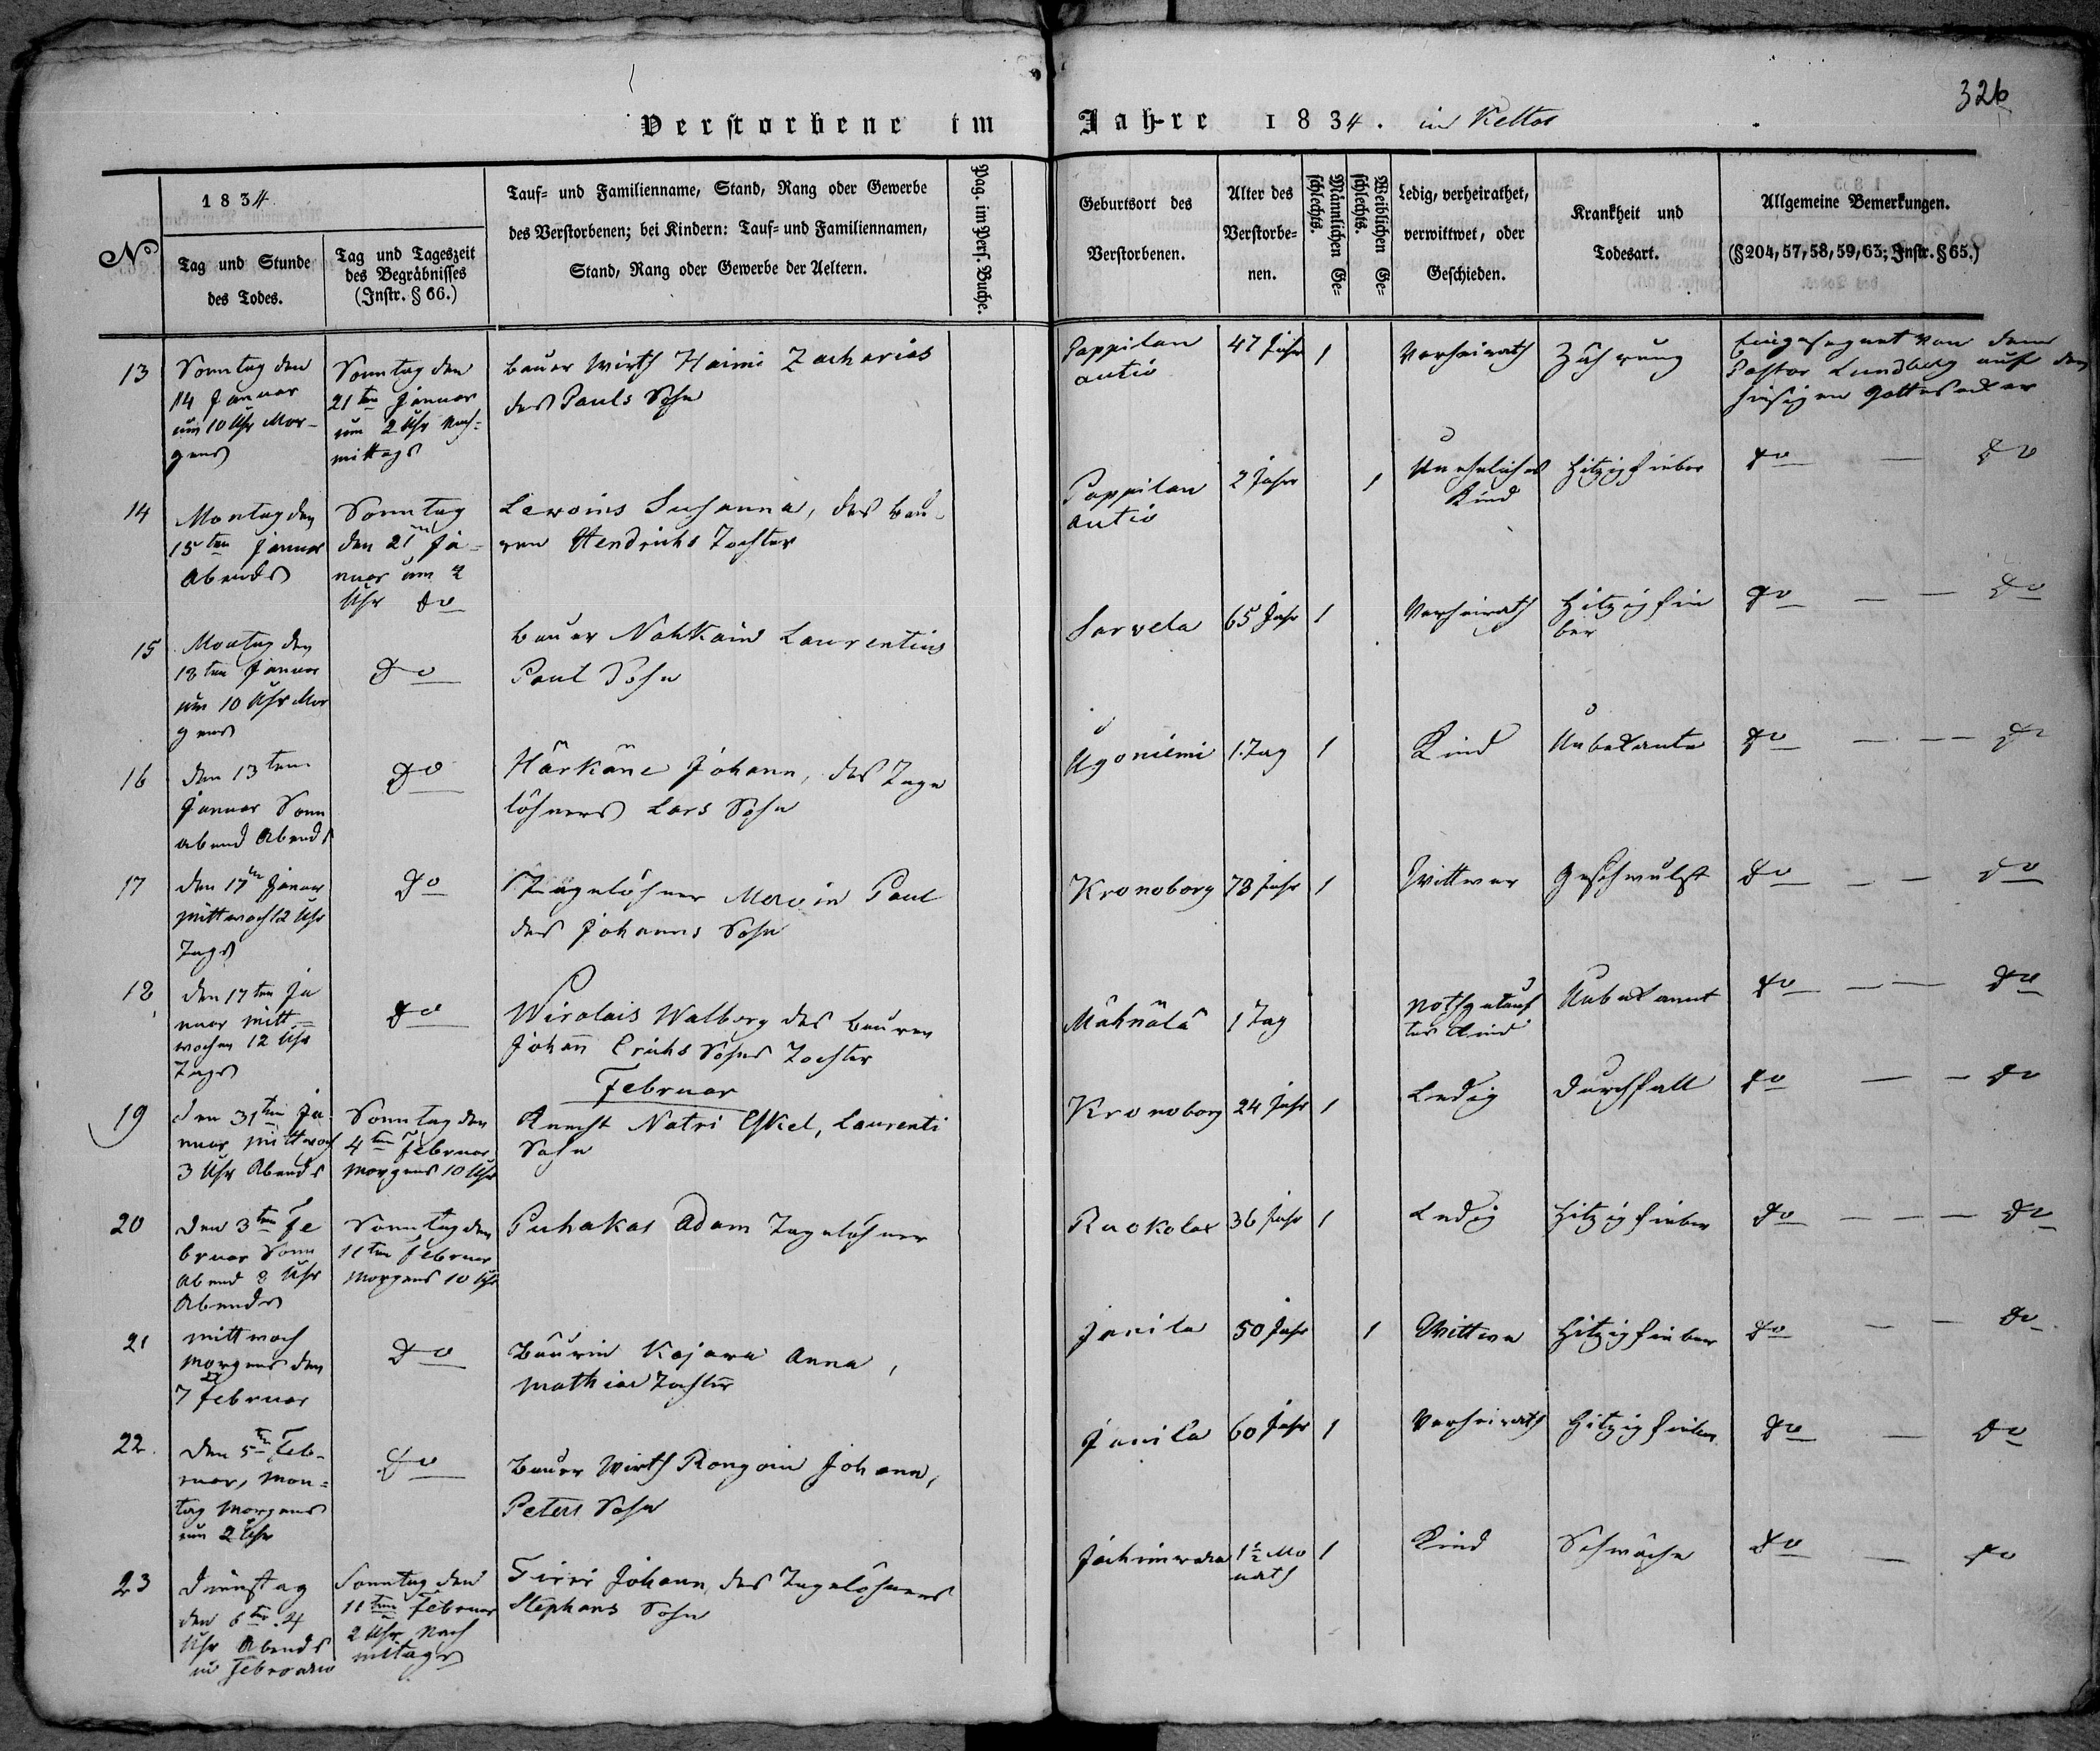 326
Verstorbene im Jahre 1834. in Keltos
No
1834.
Tag und Stunde
des Todes.
Tag und Tageszeit
des Begräbnisses
(Instr. § 66.)
Tauf= und Familienname, Stand, Rang oder Gewerbe
des Verstorbenen; bei Kindern: Tauf= und Familiennamen,
Stand, Rang oder Gewerbe der Aeltern.
Pag. im Pers. Buche.
Geburtsort des
Verstorbenen.
Alter des
Verstorbe=
nen.
Männlichen Ge=
schlechts.
Weiblichen Ge=
schlechts.
Ledig, verheirathet,
verwittwet, oder
Geschieden.
Krankheit und
Todesart.
Allgemeine Bemerkungen.
(§ 204, 57, 58, 59, 63; Instr. § 65.)
13
Sonntag den
14 Januar
um 10 Uhr Mor-
gens
Sonntag den
21ten Januar
um 2 Uhr Nach=
mittags
Bauer Wirth Haimi Zacharias
des Pauls Sohn
Pappilan
autio
47 Jahr
1
Verheirath
Zährung
Eingesegnet von dem
Pastor Lundberg auf dem
hiesigen Gottesacker
14
Montag den
15ten Januar
Abends
Sonntag
den 21ten Ja=
nuar um 2
Uhr do
Lawoins Susanna, des Bau-
ren Hendrichs Tochter
Pappilan
autio
2 Jahr
1
Unehliches
Kind
Hitzigfieber
do — do
15
Montag den
18ten Januar
um 10 Uhr Mor
gens
do
Bauer Nokkain Laurentius
Paul Sohn
Sarvela
65 Jahr
1
Verheirath
Hitzigfie
ber
do — — do
16
den 13ten
Januar Sonn
abend Abends
do
Härkäne Johann, des Tage
löhners Lars Sohn
Ugoniemi
1 Tag
1
Kind
Unbekante
do — — do
17
den 17ten Januar
Mittwoch 12 Uhr
Tags
do
Tagelöhner Mawin Paul
des Johanns Sohn
Kronoborg
78 Jahr
1
Wittwer
Geschwulst
do — — do
18
den 17ten Ja
nuar Mitt=
wochen 12 Uhr
Tags
do
Wirolais Walborg des Bauren
Johann Erichs Sohns Tochter
Mähnälä
1 Tag
Nothgetauf
tes Kind
Unbekannt
do — — do
Februar
19
den 31ten Ja
nuar Mittwoch
3 Uhr Abends
Sonntag den
4ten Februar
Morgens 10 Uhr
Knecht Natri Eskel, Laurenti
Sohn
Kronoborg
24 Jahr
1
Ledig
Durchfall
do — — do
20
den 3ten Fe
bruar Sonn
abend 8 Uhr
Abends
Sonntag den
11ten Februar
Morgens 10 Uhr
Puhakas Adam Tagelöhner
Ruokolax
36 Jahr
1
Ledig
Hitzigfieber
do — — — do
21
Mittwoch
Morgens den
7 Februar
do
Bäurin Kajawa Anna,
Mathias Tochter
Janila
50 Jahr
1
Wittwe
Hitzigfieber
do — — do
22.
den 5ten Feb-
ruar, Mon=
tag Morgens
um 2 Uhr
do
Bauer Wirth Rongoin Johann,
Peters Sohn
Janila
60 Jahr
1
Verheirath
Hitzigfieber
do — do
23
Dienstag
den 6ten 4
Uhr Abends
in Februario
Sonntag den
11ten Februar
2 Uhr Nach
mitags
Tirri Johann, des Tagelöhners
Stephans Sohn
1 1/2 Mo
nath
1
Kind
Schwäche
do — do